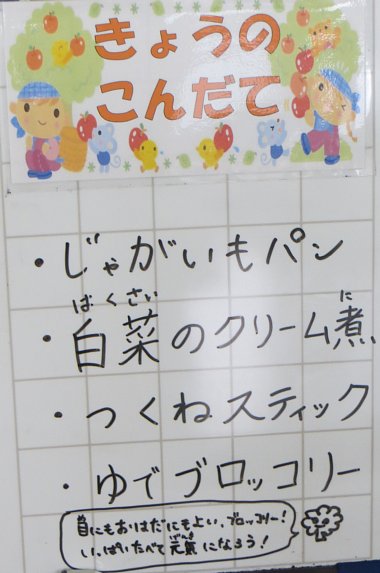 きょうの
こんだて
・じゃがいもパン
はくさい に
・白菜のクリーム煮
・つくねスティック
・ゆでブロッコリー
にもおはだにもよい、ブロッコリー!
げんき
いっぱいたべて元気になろう!